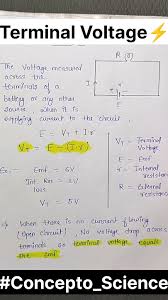 Terminal Voltage⚡
The voltage measured
across the
terminals of a
battery or any other
source when it is
supplying current to the
circuit
R (Ω)
I
E
E = VT + I.r
VT = E - (I.r)
VT = Terminal Voltage
E = Emf
r = internal resistance
R = External resistance
Ex:- Emf = 6V
Int Res = 
I = 
VT =
When there is no current flowing
(open circuit), No voltage drop across
terminals so terminal voltage equals
the emf
#Concepto_Science